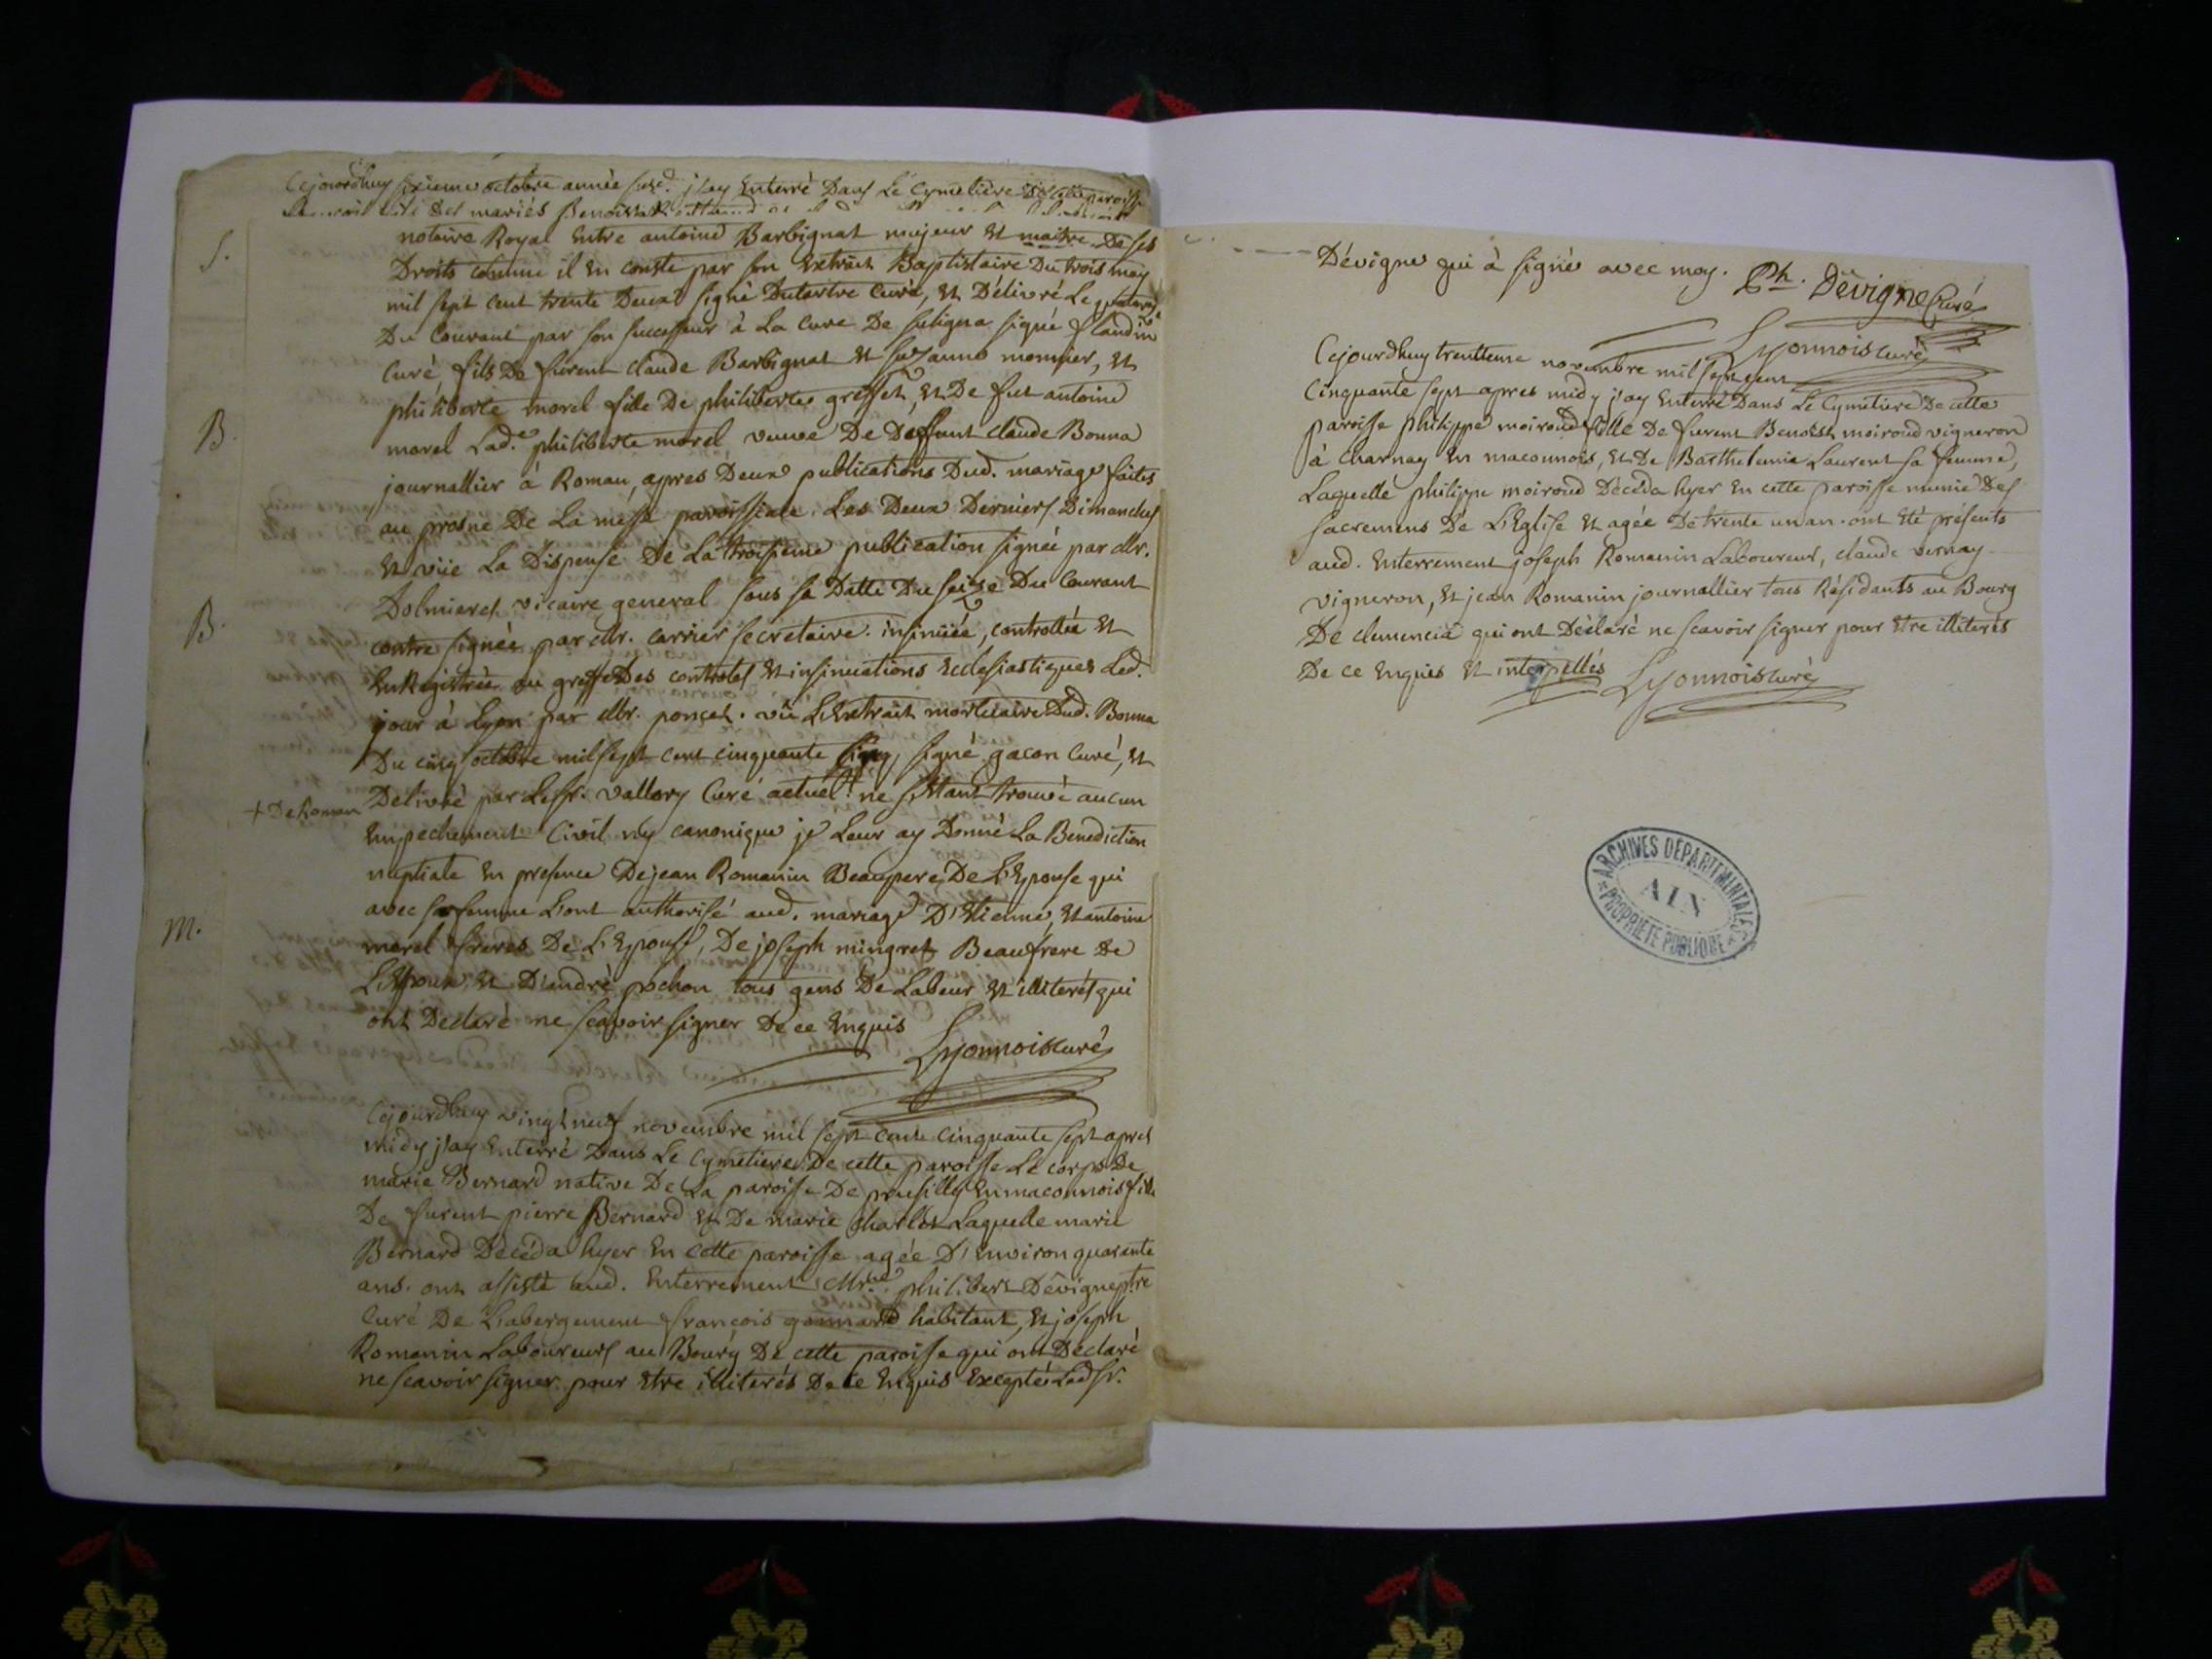 Cejourdhuy sixieme octobre année susd. j'ay Enterré Dans Le Cymetiere de cette paroisse
des mariés Benoist
S.
notaire Royal Entre antoine Barbignat majeur et maitre De ses
Droits comme il En conste par son Extrait Baptistaire Du trois may
mil sept cent trente Deux signé Dutartre curé, et Délivré Le quatorze
Du Courant par son successeur à La Cure De suligna signé flandin
curé fils De furent claude Barbignat et suzanne monnier, et
philiberte morel fille De philiberte greffet, et De fut antoine
B.
morel Lad.e philiberte morel veuve De Deffunt claude Bonna
journallier à Roman, apres Deux publications Dud. mariage faites
au prosne De La messe paroissiale Les Deux Derniers Dimanches
et vüe La Dispense De La troisieme publication signée par Mr.
Dolmieres vicaire general sous sa Datte Du seize Du Courant
B.
contre signée par Mr. carrier secretaire. insinüée, controllée et
Enregistrée au greffe Des controles et insinuations Ecclesiastiques Led.
jour à Lyon par Mr. poncet. vû L'Extrait mortuaire Dud. Bonna
Du cinq octobre mil sept cent cinquante signé gacon Curé, et
+ De Roman
Delivré par Le sr. vallory Curé actuel + ne s'Etant trouvé aucun
Empechement Civil ny canonique je Leur ay Donné La Benediction
nuptiale En presence De jean Romanin Beaupere De L'Epouse qui
avec sa femme L'ont authorisé aud. mariage D'Etienne, et antoine
M.
morel freres De L'Epouse, De joseph mingret Beaufrere De
L'Epoux, et D'andré pochon tous gens De Labeur et illiterés qui
ont Declaré ne scavoir signer De ce Enquis
Lyonnois curé
Cejourdhuy vingt neuf novembre mil sept cent cinquante sept apres
midy j'ay Enterré Dans Le Cymetiere De cette paroisse Le corps De
marie Bernard native De La paroisse De prusilly En maconnois fille
De furent pierre Bernard et De marie charlot Laquelle marie
Bernard Décéda hyer En cette paroisse agée D'Environ quarente
ans. ont assisté aud. Enterrement Mre. philibert Dévigne ptre
Curé De L'abergement françois gonnard habitant, et joseph
Romanin Laboureurs au Bourg De cette paroisse qui ont Déclaré
ne scavoir signer pour Etre illiterés De ce Enquis Excepté Led sr.
Dévigne qui à signé avec moy. Ph. Dévigne Curé
Lyonnois curé
Cejourdhuy trentieme novembre mil sept cent
Cinquante sept apres midy j'ay Enterré Dans Le Cymetiere De cette
paroisse philippe moiroud fille De furent Benoist moiroud vigneron
à Charnay En maconnois, et De Barthelemie Laurent sa femme,
Laquelle philippe moiroud Décéda hyer En cette paroisse munie Des
sacremens De L'Eglise et agée De trente un an. ont été présents
aud. Enterrement joseph Romanin Laboureur, claude vernay
vigneron, et jean Romanin journallier tous Résidants au Bourg
De clemencia qui ont Déclaré ne scavoir signer pour Etre illiterés
De ce Enquis et interpellés Lyonnois curé
ARCHIVES DEPARTEMENTALES
AIN
PROPRIETE PUBLIQUE